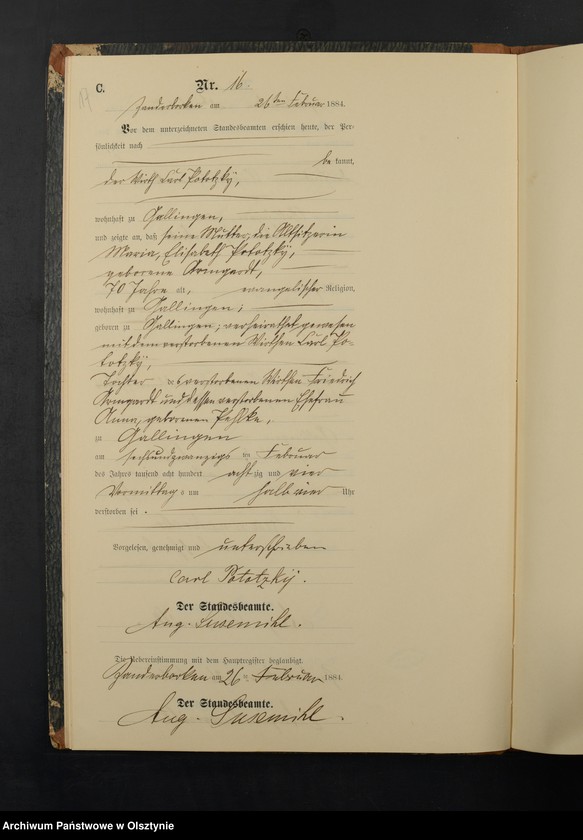 C.
Nr. 16.
am 26ten Februar 1884.
Vor dem unterzeichneten Standesbeamten erschien heute, der Per-
sönlichkeit nach
bekannt,
der Wirth Carl Pototzky,
wohnhaft zu Gallingen,
und zeigte an, daß seine Mutter, die Altsitzerin
Maria, Elisabeth Pototzky,
geborene Romgardt,
70 Jahre alt, evangelischer Religion,
wohnhaft zu Gallingen;
geboren zu Gallingen; verheirathet gewesen
mit dem verstorbenen Wirthen Carl Po-
totzky,
Tochter des verstorbenen Wirthen Friedrich
Romgardt und dessen verstorbenen Ehefrau
Anna, geborenen Pehlke,
zu Gallingen
am sechsundzwanzigsten Februar
des Jahres tausend acht hundert achtzig und vier
Vormittags um halb vier Uhr
verstorben sei.
Vorgelesen, genehmigt und unterschrieben
Carl Pototzky.
Der Standesbeamte.
Aug. Susemihl.
Die Uebereinstimmung mit dem Hauptregister beglaubigt.
am 26ten Februar 1884.
Der Standesbeamte.
Aug. Susemihl.
Archiwum Państwowe w Olsztynie